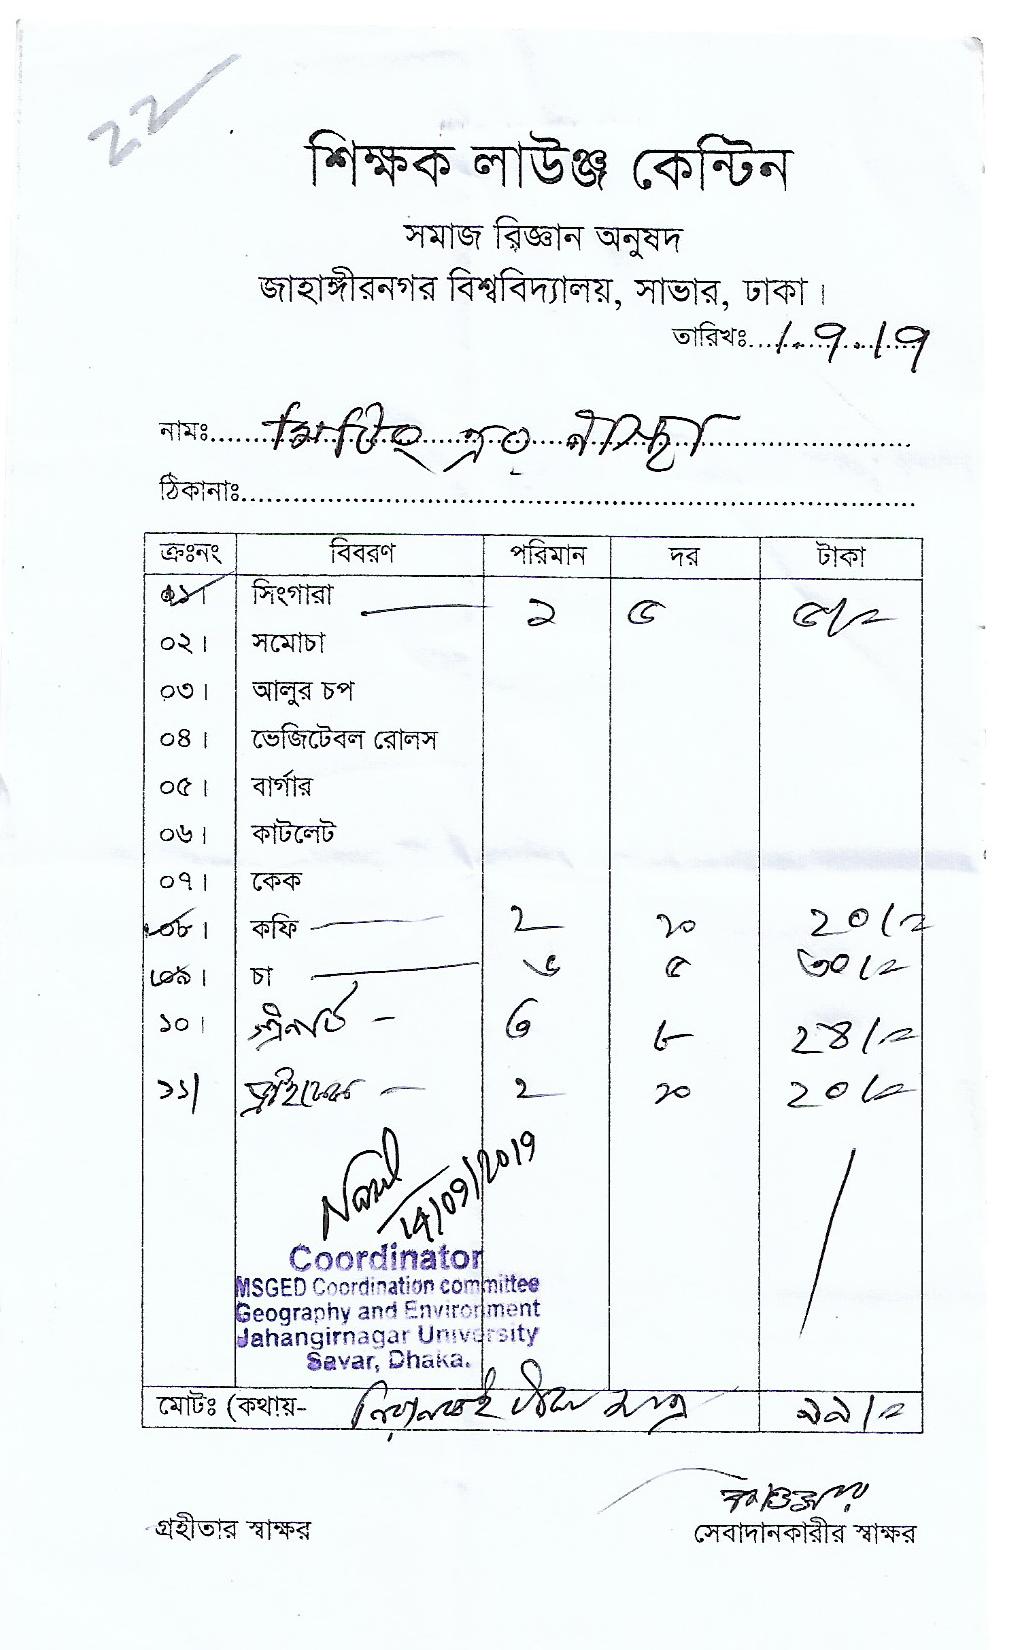 22
শিক্ষক লাউঞ্জ কেন্টিন
সমাজ বিজ্ঞান অনুষদ
জাহাঙ্গীরনগর বিশ্ববিদ্যালয়, সাভার, ঢাকা।
তারিখঃ...1.9.19
নামঃ... মিটিং এর নাস্তা
ঠিকানাঃ...
ক্রঃনং বিবরণ পরিমান দর টাকা
০১। সিংগারা ১ ৫ ৫/=
০২। সমোচা
০৩। আলুর চপ
০৪। ভেজিটেবল রোলস
০৫। বার্গার
০৬। কাটলেট
০৭। কেক
০৮। কফি ২ ১০ ২০/=
০৯। চা ৬ ৫ ৩০/=
১০। ৩ ৮ ২৪/=
১১। ২ ১০ ২০/=
14/09/2019
Coordinator
MSGED Coordination committee
Geography and Environment
Jahangirnagar University
Savar, Dhaka.
মোটঃ (কথায়- নিরানব্বই টাকা মাত্র ৯৯/=
গ্রহীতার স্বাক্ষর সেবাদানকারীর স্বাক্ষর